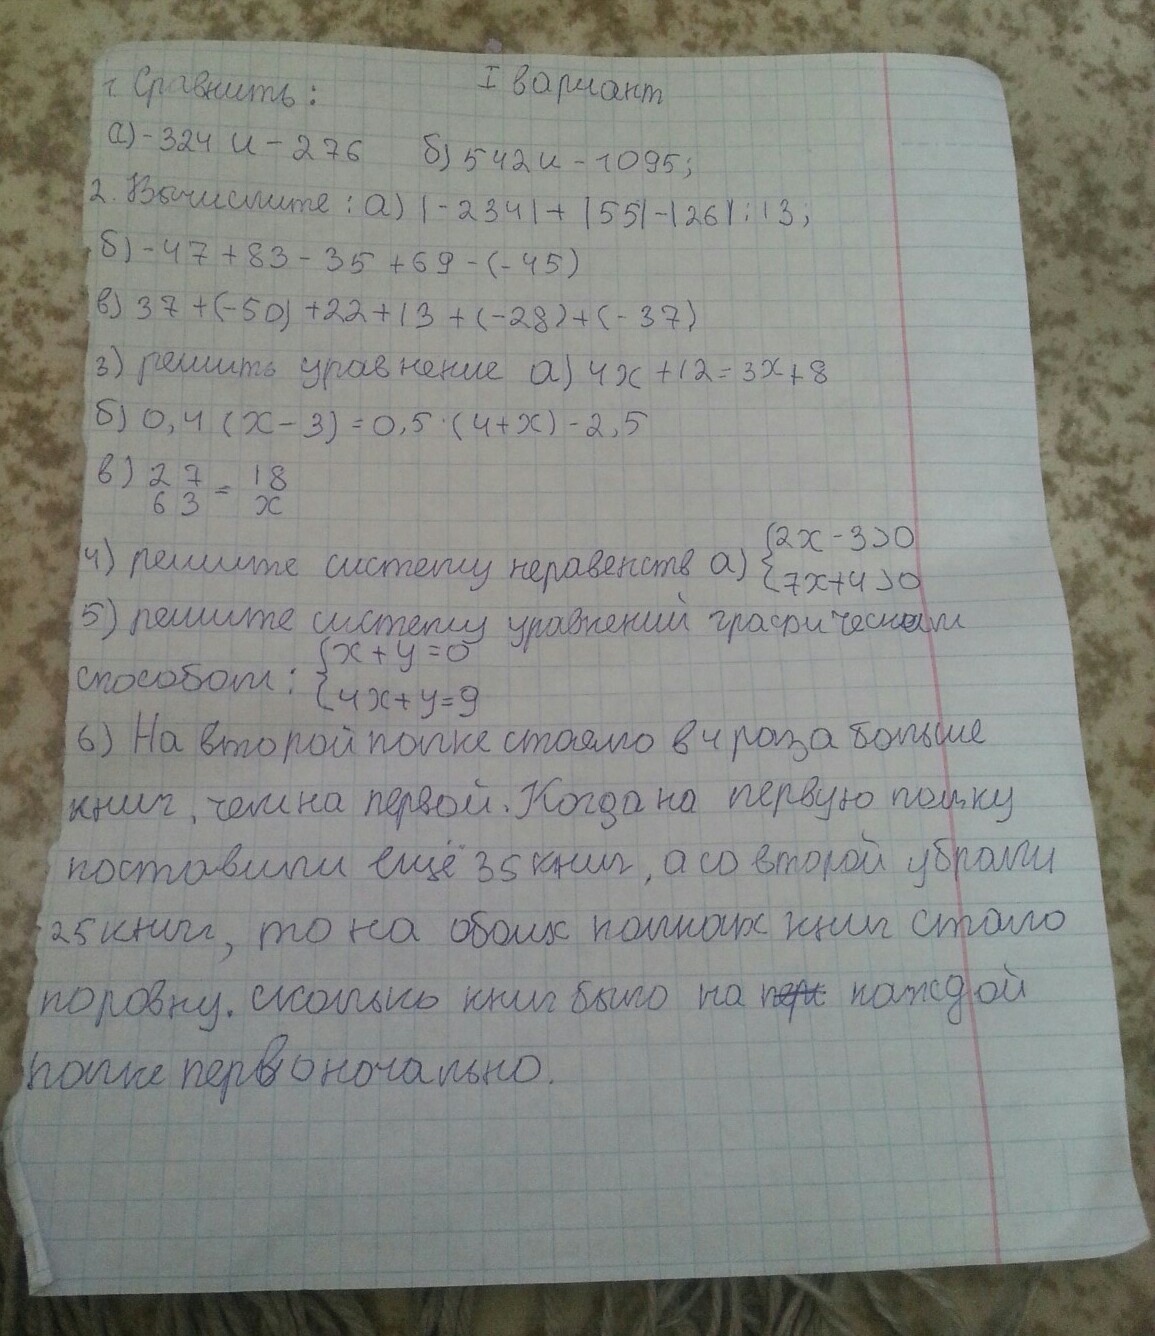 I вариант
1. Сравнить:
а) -324 и -276 б) 542 и -1095;
2. Вычислите: а) |-234| + |55| - |26| : 13;
б) -47 + 83 - 35 + 69 - (-45)
в) 37 + (-50) + 22 + 13 + (-28) + (-37)
3) решить уравнение а) 4x + 12 = 3x + 8
б) 0,4 (x - 3) = 0,5 · (4 + x) - 2,5
в) 27/63 = 18/x
4) решите систему неравенств а) { 2x - 3 > 0
7x + 4 > 0
5) решите систему уравнений графическим
способом: { x + y = 0
4x + y = 9
6) На второй полке стояло в 4 раза больше
книг, чем на первой. Когда на первую полку
поставили ещё 35 книг, а со второй убрали
25 книг, то на обоих полках книг стало
поровну. сколько книг было на каждой
полке первоночально.